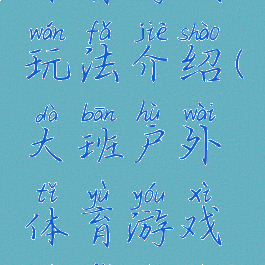 wán fǎ jiè shào
玩法介绍(
dà bān hù wài
大班户外
tǐ yù yóu xì
体育游戏